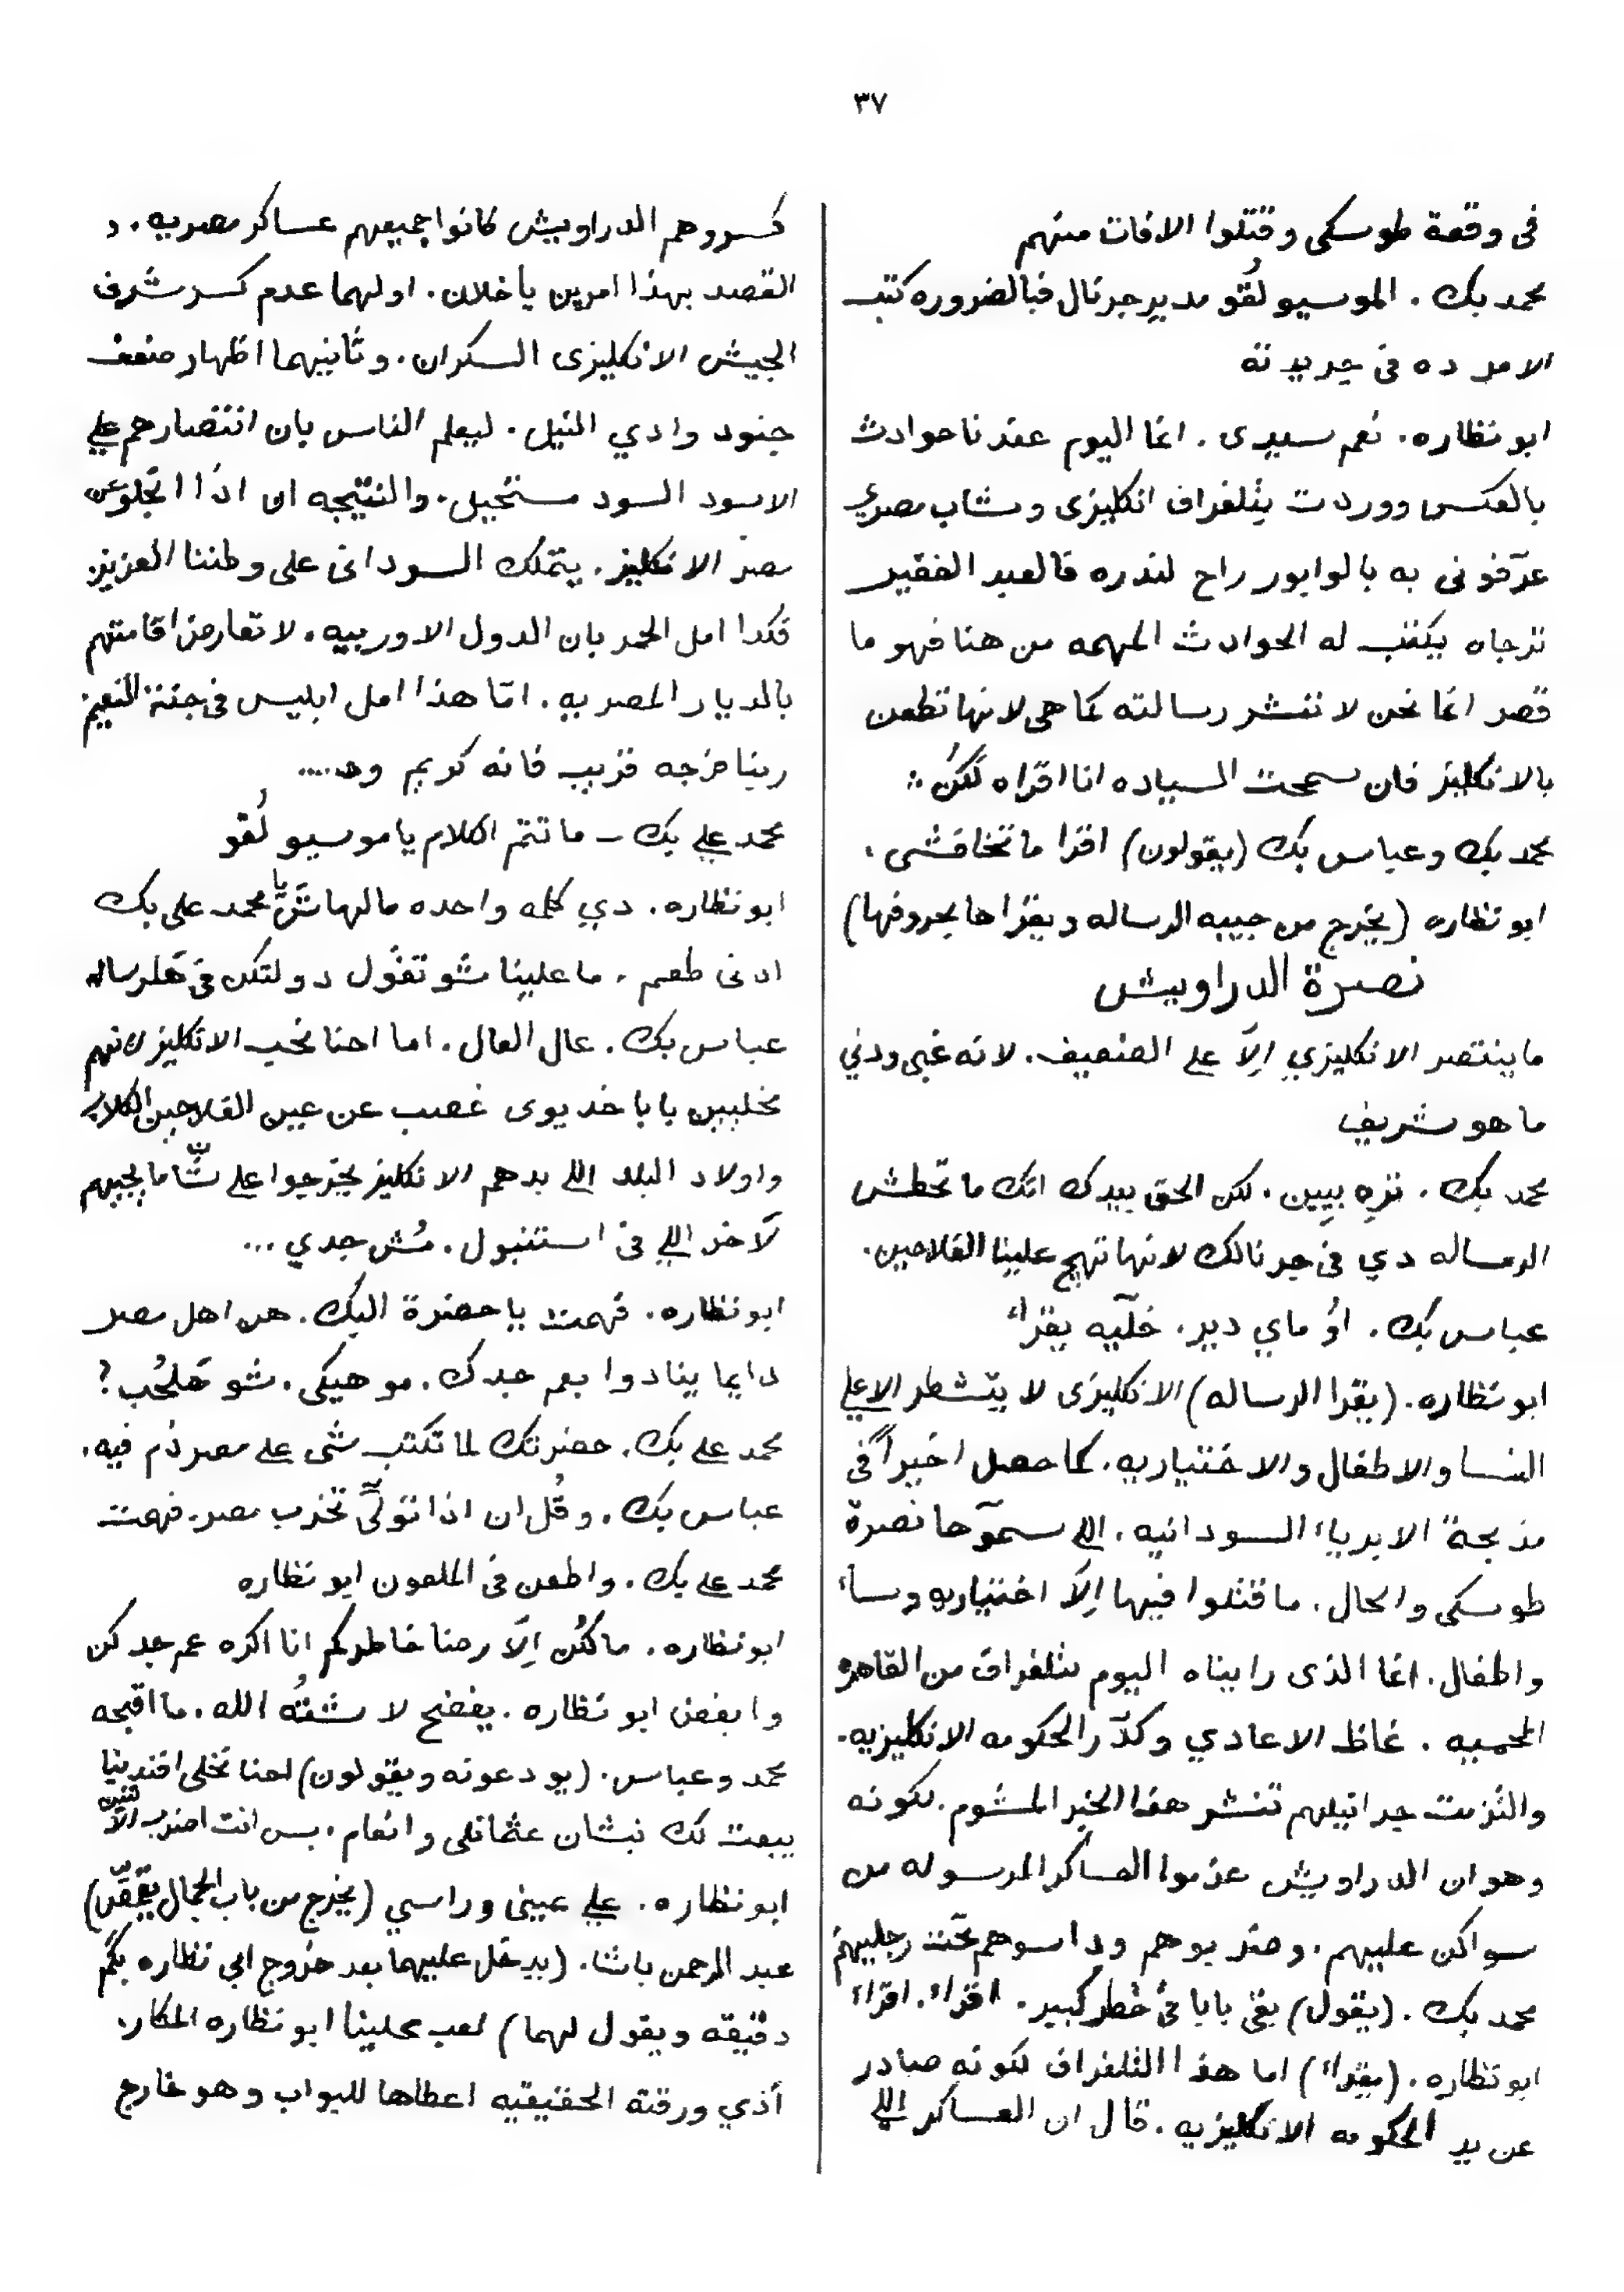 ٣٧
فى وقعة طوسكى وقتلوا الافات منهم
محمد بك . الموسيو لُقو مدير جرنال فبالضروره كتب
الامر ده فى جريدته
ابو نظاره . نعم سيدى . انما اليوم عندنا حوادث
بالعكس ووردت بتلغراف انكليزى وشاب مصري
عرّفونى به بالوابور راح لندره فالعبد الفقير
ترجاه يكتب له الحوادث المهمه من هنا فهو ما
قصر انما نحن لا ننشر رسالته كما هى لانها تطعن
بالانكليز فان سمحت السياده انا اقراه لكُن :
محمد بك وعباس بك (يقولون) اقرا ما تخافشى .
ابو نظاره (يخرج من جيبه الرساله ويقراها بحروفها)
نصرة الدراويش
ما ينتصر الانكليزي اِلاّ على الضعيف . لانه غبى ودني
ما هو شريف
محمد بك . نزه بيبن . لكن الحق بيدك انك ما تحطش
الرساله دي فى جرنالك لانها تهيج علينا الفلاحين .
عباس بك . اوُ ماي دير . خلّيه يقراء
ابو نظاره . (يقرا الرساله) الانكليزى لا يتشطر الا على
النسا والاطفال والاختياريه . كما حصل اخيراً فى
مذبحة الابرياء السودانيه . اللي سموّها نصرة
طوسكى والحال . ما قتلوا فيها اِلاّ اختياريه ونساء
واطفال . انما الذى رايناه اليوم بتلغراف من القاهره
المحميه . غاظ الاعادي وكدّر الحكومه الانكليزيه .
والتزمت جرانيلهم تنشر هذا الخبر المشوم . لكونه
وهو ان الدراويش عدموا العساكر المرسوله من
سواكن عليهم . وضربوهم وداسوهم تحت رجليهم
محمد بك . (يقول) بقى بابا فى خطر كبير . اقراء . اقراء
ابو نظاره . (يقراء) اما هذا التلغراف لكونه صادر
عن يد الحكومه الانكليزيه . قال ان العساكر اللي
كسروهم الدراويش كانوا جميعهم عساكر مصريه . و
القصد بهذا امرين يا خلان . اولهما عدم كسر شرف
الجيش الانكليزى السكران . وثانيهما اظهار ضعف
جنود وادي النيل . ليعلم الناس بان انتصارهم على
الاسود السود مستحيل . والنتيجه ان اذا انجلو عن
مصر الانكليز . يتملك السودانى على وطننا العزيز
فكدا امل الحمر بان الدول الاوربيه . لا تعارض اقامتهم
بالديار المصريه . امّا هذا امل ابليس فى جنة النعيم
ربنا فرجه قريب فانه كريم وحـ....
محمد على بك – ما تتم الكلام يا موسيو لُقو
ابو نظاره . دي كلمه واحده مالهاش يا محمد على بك
ادنى طعم . ما علينا شو تقول دولتكن فى هَلرساله
عباس بك . عال العال . اما احنا نحب الانكليز لانهم
مخليين بابا خديوى غصب عن عين الفلاحين الكلاب
واولاد البلد اللي بدهم الانكليز يخرجوا على شان ما يجيهم
لاّخر اللي فى استنبول . مُش جدي ...
ابو نظاره . فهمت يا حضرة البك . هن اهل مصر
دايما ينادوا بعم جدك . مو هيكى . شو هَلحُب ؟
محمد على بك . حضرتك لما تكتب شى على مصر ذم فيه .
عباس بك . وقُل ان اذا تولّى تخرب مصر . فهمت
محمد على بك . واطعن فى الملعون ابو نظاره
ابو نظاره . ما لكُن اِلاّ رضا خاطركم انا اكره عم جدكن
وابغض ابو نظاره . يفضح لا شتُه الله . ما اقبحه
محمد وعباس . (يودعونه ويقولون) احنا نخلى افندينا
يبعت لك نيشان عثمانلى وانعام . بس انت اضرب الاتنين
ابو نظاره . على عينى وراسي (يخرج من باب الجمال يتمقّس)
عبد الرحمن باشا . (يدخل عليهما بعد خروج ابي نظاره بكَم
دقيقه ويقول لهما) لعب علينا ابو نظاره المكار .
أذي ورقته الحقيقيه اعطاها للبواب وهو خارج